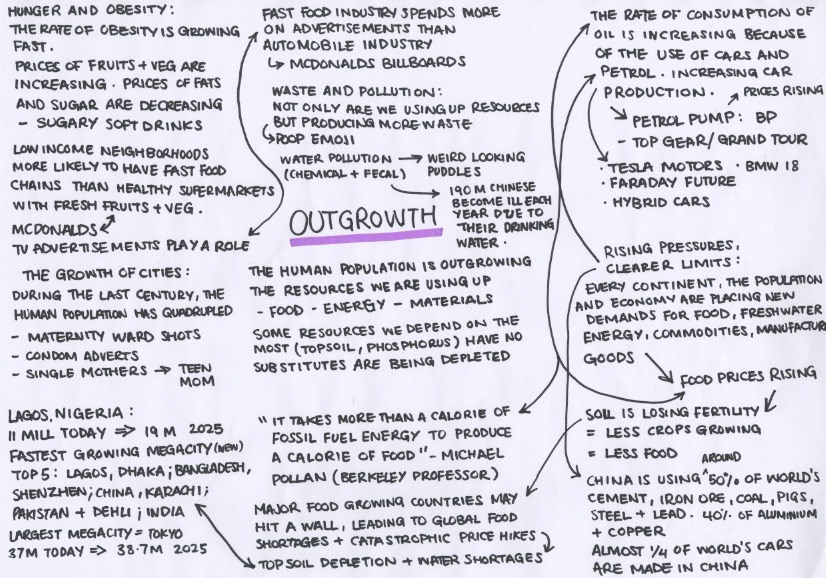 HUNGER AND OBESITY:
THE RATE OF OBESITY IS GROWING
FAST.
PRICES OF FRUITS + VEG ARE
INCREASING. PRICES OF FATS
AND SUGAR ARE DECREASING
- SUGARY SOFT DRINKS
LOW INCOME NEIGHBORHOODS
MORE LIKELY TO HAVE FAST FOOD
CHAINS THAN HEALTHY SUPERMARKETS
WITH FRESH FRUITS + VEG.
MCDONALDS
TV ADVERTISEMENTS PLAY A ROLE
THE GROWTH OF CITIES:
DURING THE LAST CENTURY, THE
HUMAN POPULATION HAS QUADRUPLED
- MATERNITY WARD SHOTS
- CONDOM ADVERTS
- SINGLE MOTHERS → TEEN
MOM
LAGOS, NIGERIA:
11 MILL TODAY ⇒ 19 M 2025
FASTEST GROWING MEGACITY (NEW)
TOP 5: LAGOS, DHAKA; BANGLADESH,
SHENZHEN; CHINA, KARACHI;
PAKISTAN + DEHLI; INDIA
LARGEST MEGACITY = TOKYO
37M TODAY ⇒ 38.7M 2025
FAST FOOD INDUSTRY SPENDS MORE
ON ADVERTISEMENTS THAN
AUTOMOBILE INDUSTRY
↳ MCDONALDS BILLBOARDS
WASTE AND POLLUTION:
NOT ONLY ARE WE USING UP RESOURCES
BUT PRODUCING MORE WASTE
↳ POOP EMOJI
WATER POLLUTION → WEIRD LOOKING
(CHEMICAL + FECAL) PUDDLES
190 M CHINESE
BECOME ILL EACH
YEAR DUE TO
THEIR DRINKING
WATER.
OUTGROWTH
THE HUMAN POPULATION IS OUTGROWING
THE RESOURCES WE ARE USING UP
- FOOD - ENERGY - MATERIALS
SOME RESOURCES WE DEPEND ON THE
MOST (TOPSOIL, PHOSPHORUS) HAVE NO
SUBSTITUTES ARE BEING DEPLETED
"IT TAKES MORE THAN A CALORIE OF
FOSSIL FUEL ENERGY TO PRODUCE
A CALORIE OF FOOD" - MICHAEL
POLLAN (BERKELEY PROFESSOR)
MAJOR FOOD GROWING COUNTRIES MAY
HIT A WALL, LEADING TO GLOBAL FOOD
SHORTAGES + CATASTROPHIC PRICE HIKES
TOP SOIL DEPLETION + WATER SHORTAGES
THE RATE OF CONSUMPTION OF
OIL IS INCREASING BECAUSE
OF THE USE OF CARS AND
PETROL. INCREASING CAR
PRODUCTION. ↗ PRICES RISING
PETROL PUMP: BP
- TOP GEAR/GRAND TOUR
· TESLA MOTORS · BMW I8
· FARADAY FUTURE
· HYBRID CARS
RISING PRESSURES,
CLEARER LIMITS:
EVERY CONTINENT, THE POPULATION
AND ECONOMY ARE PLACING NEW
DEMANDS FOR FOOD, FRESHWATER
ENERGY, COMMODITIES, MANUFACTUR
GOODS
FOOD PRICES RISING
SOIL IS LOSING FERTILITY
= LESS CROPS GROWING
= LESS FOOD
AROUND
CHINA IS USING ^50% OF WORLD'S
CEMENT, IRON ORE, COAL, PIGS,
STEEL + LEAD. 40% OF ALUMINIUM
+ COPPER
ALMOST 1/4 OF WORLD'S CARS
ARE MADE IN CHINA